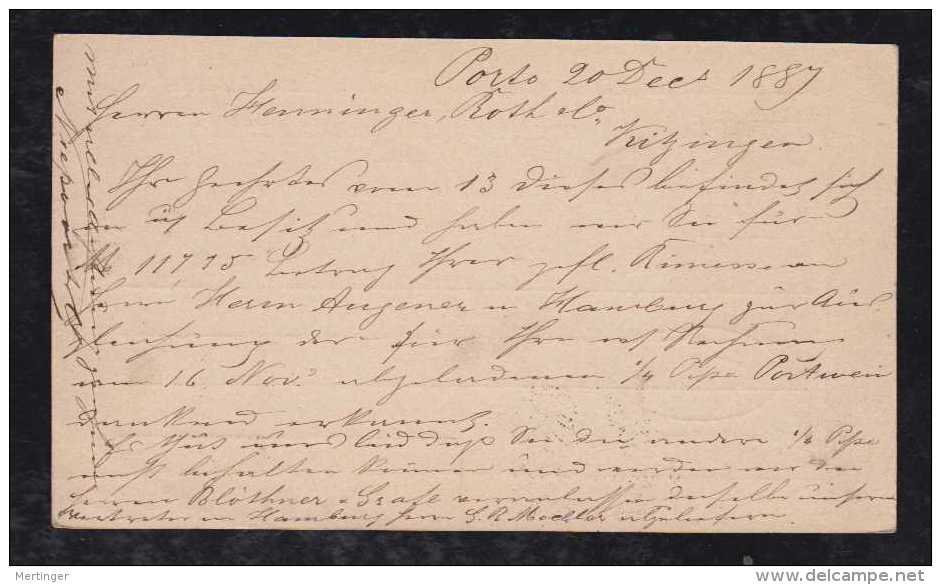 Porto 20 Decb 1887
Herren Henninger, Roth & Co
Kitzingen.
Ihr Geehrtes vom 13 dieses befindet sich
in Besitz und haben wir Sie für
M 117,75 Betrag Ihrer gefl. Rimesse an
Herrn Augener in Hamburg zur Aus
der für Ihre
vom 16 Nov. abgeladenen 1/4 Pipe Portwein
dankend erkannt.
Es thut uns leid daß Sie die andere 1/4 Pipe
nicht behalten können und werden wir die
Herren Blöthner & Grafe veranlassen dieselbe unserm
Vertreter in Hamburg Herrn G. R. abzuliefern.
Mertinger
www.delcampe.net